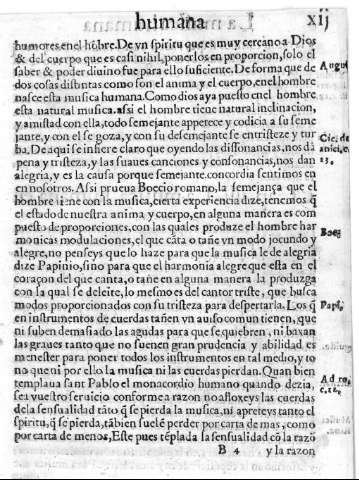 humana
xij
humores enel hõbre. De vn spiritu que es muy cercano a Dios
& del cuerpo que es casi nihil, ponerlos en proporcion, solo el
saber & poder diuino fue para ello suficiente. De forma que de
Augu
dos cosas distintas como son el anima y el cuerpo, enel hombre
nasce esta musica humana. Como dios aya puesto enel hombre
esta natural musica. assi el hombre tiene natural inclinacion,
y amistad con ella, todo semejante apperece y codicia a su seme
jante, y con el se goza, y con su desemejante se entristeze y tur
ba. De aqui se infiere claro que oyendo las dissonancias, nos dã
Cic. de
anici, ca
pena y tristeza, y las suaues canciones y consonancias, nos dan
13.
alegria, y es la causa porque semejante concordia sentimos en
en nosotros. Assi prueua Boecio romano, la semejança que el
hombre tiene con la musica, cierta experiencia dize, tenemos q̃
el estado de nuestra anima y cuerpo, en alguna manera es com
puesto de proporciones, con las quales produze el hombre har
monicas modulaciones, el que cãta o tañe vn modo jocundo y
Boe:
alegre, no penseys que lo haze para que la musica le de alegria
dize Papinio, sino para que el harmonia alegre que esta en el
coraçon del que canta, o tañe en alguna manera la produzga
con la qual se deleite, lo mesmo es del cantor triste, que busca
modos proporcionados con su tristeza para despertarla. Los q̃
Papi.
en instrumentos de cuerdas tañen vn auiso comun tienen, que
ni suben demasiado las agudas para que se quiebren, ni baxan
las graues tanto que no suenen gran prudencia y abilidad es
menester para poner todos los instrumentos en tal medio, y to
no que ni por ello la musica ni las cuerdas pierdan. Quan bien
templaua sant Pablo el monacordio humano quando dezia,
Ad ro,
c, 12.
sea vuestro seruicio conforme a razon no afloxeys las cuerdas
dela sensualidad tãto q̃ se pierda la musica, ni apreteys tanto el
spiritu, q̃ se pierda, tãbien suele perder por carta de mas, como
por carta de menos, Este pues tẽplada la sensualidad cõ la razõ
B 4
y la razon